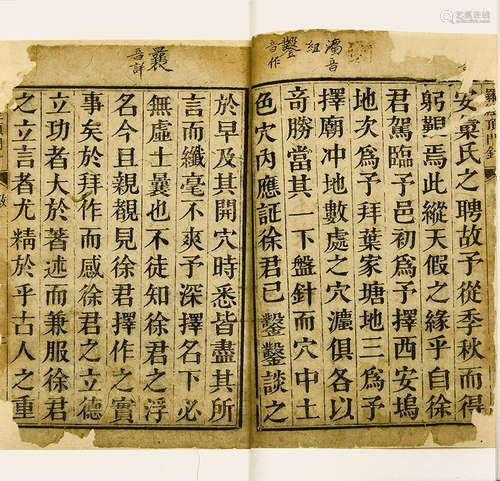 安彙氏之聘故予從季秋而得
躬覲焉此縱天假之緣乎自徐
君駕臨予邑初為予擇西安塢
地次為予拜葉家塘地三為予
擇廟冲地數處之穴灋俱各以
奇勝當其一下盤針而穴中土
色穴內應証徐君已鑿鑿談之
於早及其開穴時悉皆盡其所
言而纖毫不爽予深擇名下必
無虛士曩也不徒知徐君之浮
名今且親覩見徐君擇作之實
事矣於拜作而感徐君之立德
立功者大於著述而兼服徐君
之立言者尤精於乎古人之重
灋音
組
鑿
音作
曩
音詳